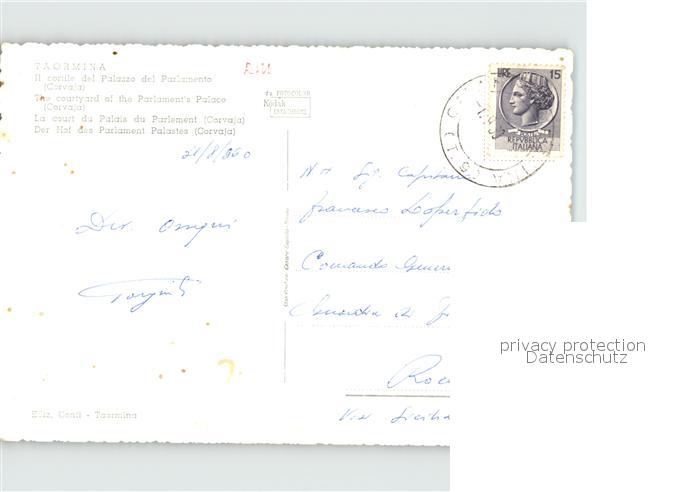 TAORMINA
Il cortile del Palazzo del Parlamento
(Corvaja)
The courtyard of the Parlament's Palace
(Corvaja)
La court du Palais du Parlement (Corvaja)
Der Hof des Parlament Palastes (Corvaja)
da FOTOCOLOR
Kodak
EKTACHROME
LIRE 15
REPVBBLICA
ITALIANA
21/8/960
Dev. Ossequi
N H Sig. Capitano
Francesco
Comando Gener
di
Via Sicilia
Ediz. Conti - Taormina
privacy protection
Datenschutz